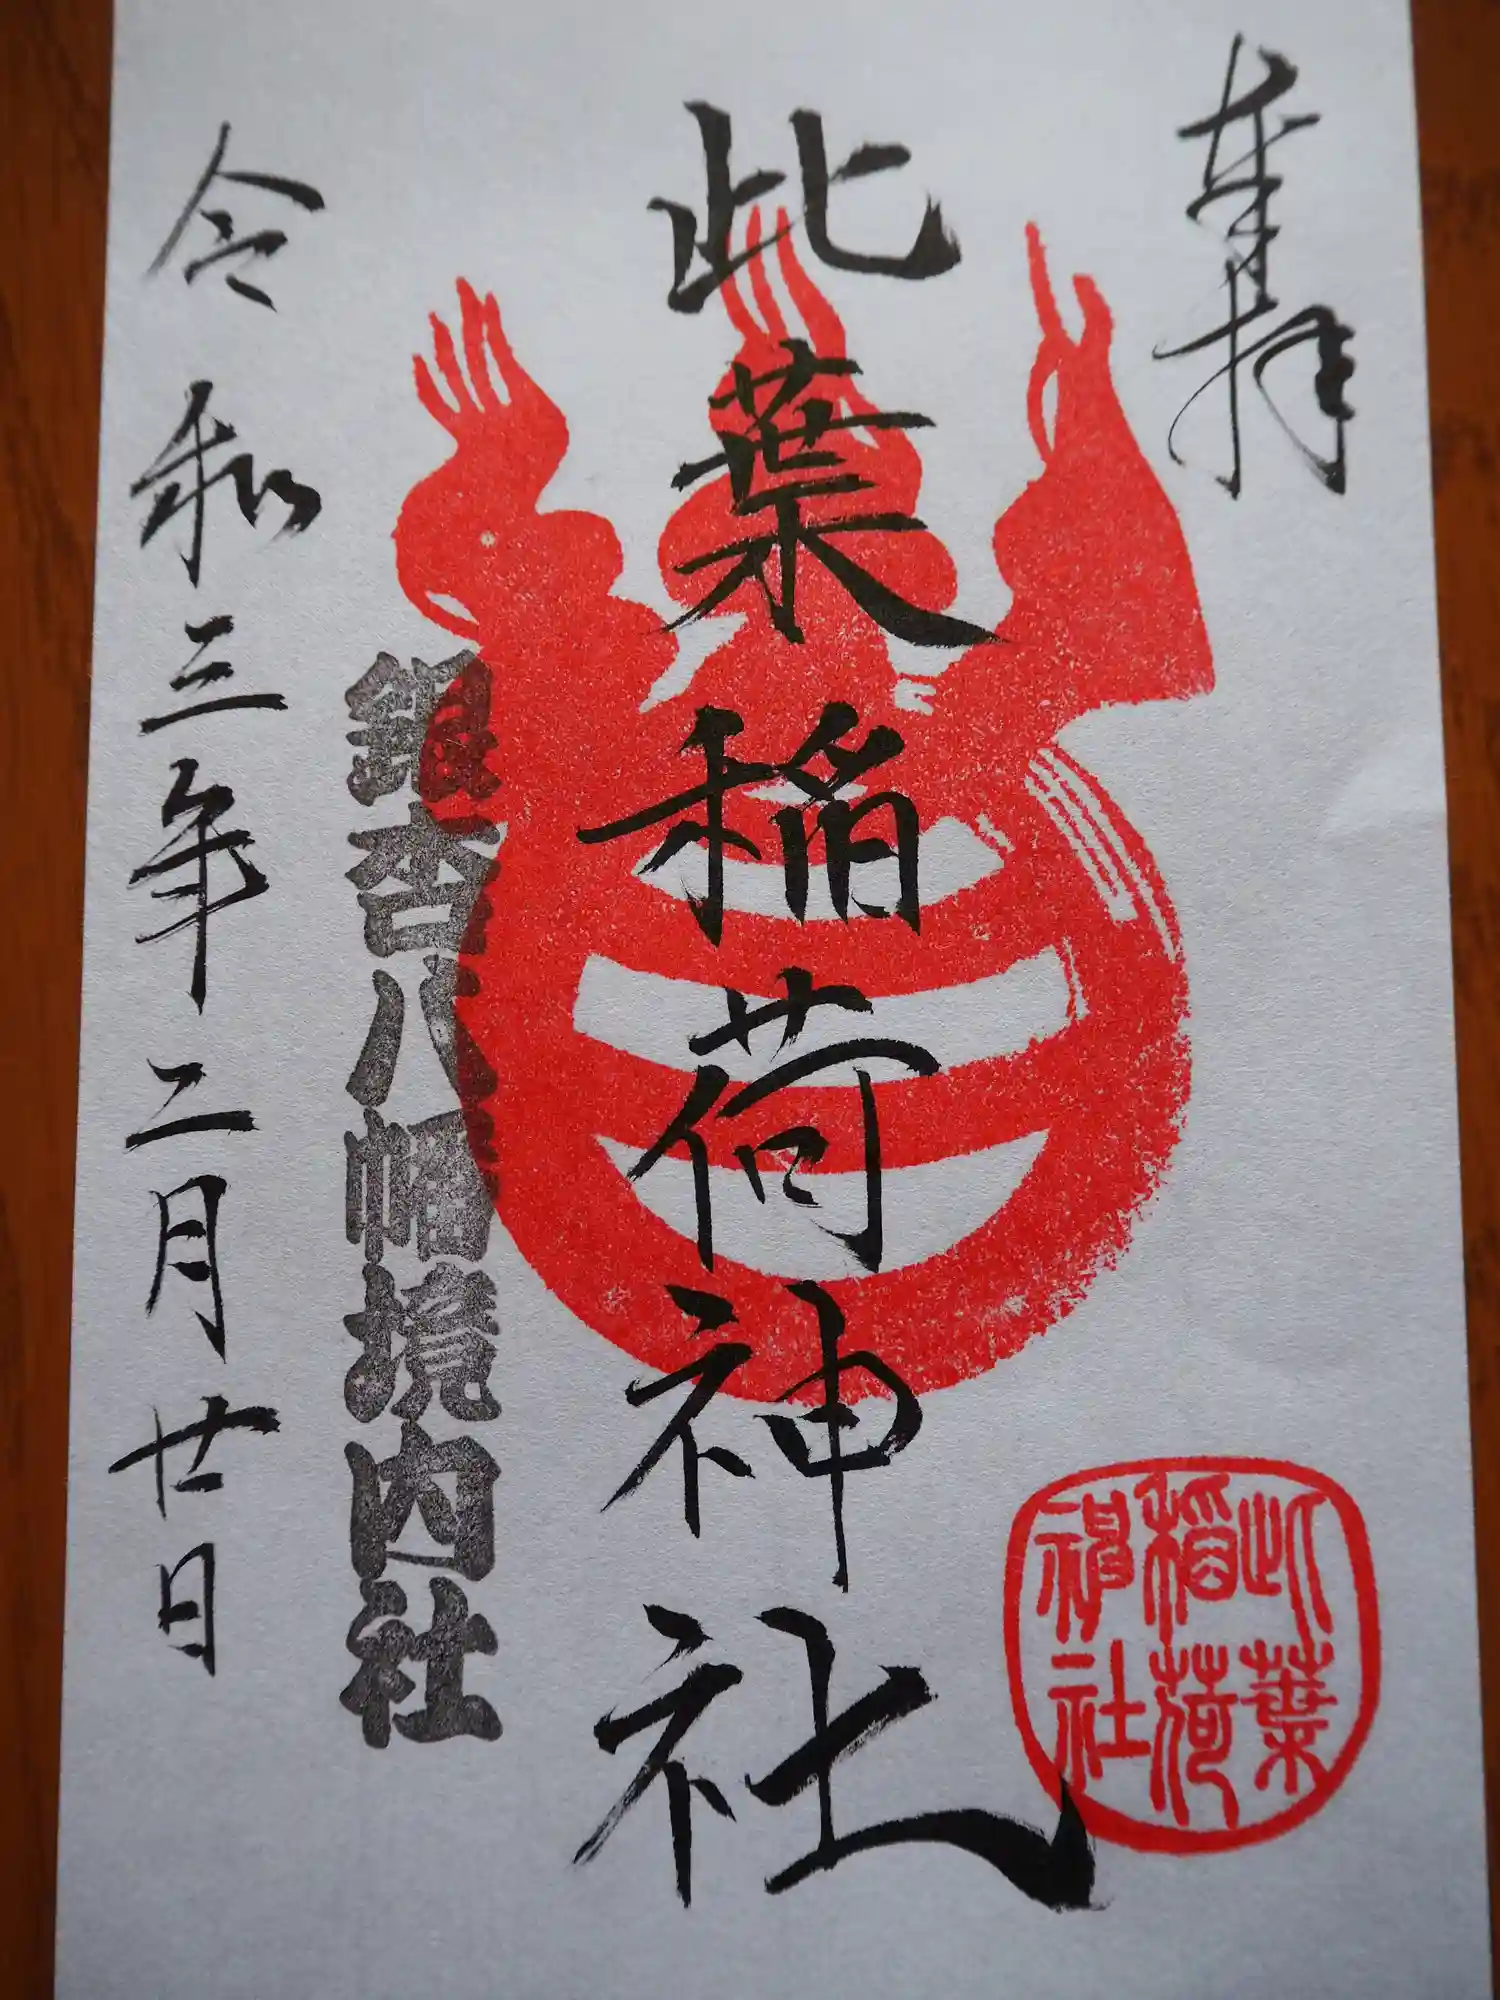 奉拝
此葉稲荷神社
此葉
稲荷
神社
銀杏八幡境内社
令和三年二月廿日